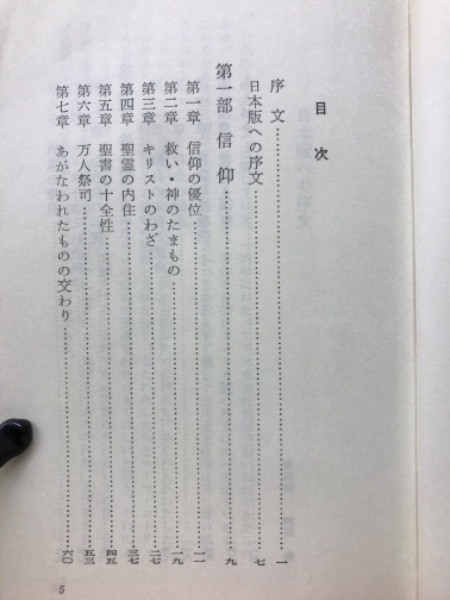 目次
序文……一
日本版への序文……七
第一部 信仰……九
第一章 信仰の優位……一一
第二章 救い・神のたまもの……一九
第三章 キリストのわざ……二七
第四章 聖霊の内住……三七
第五章 聖書の十全性……四五
第六章 万人祭司……五三
第七章 あがなわれたものの交わり……六〇
5